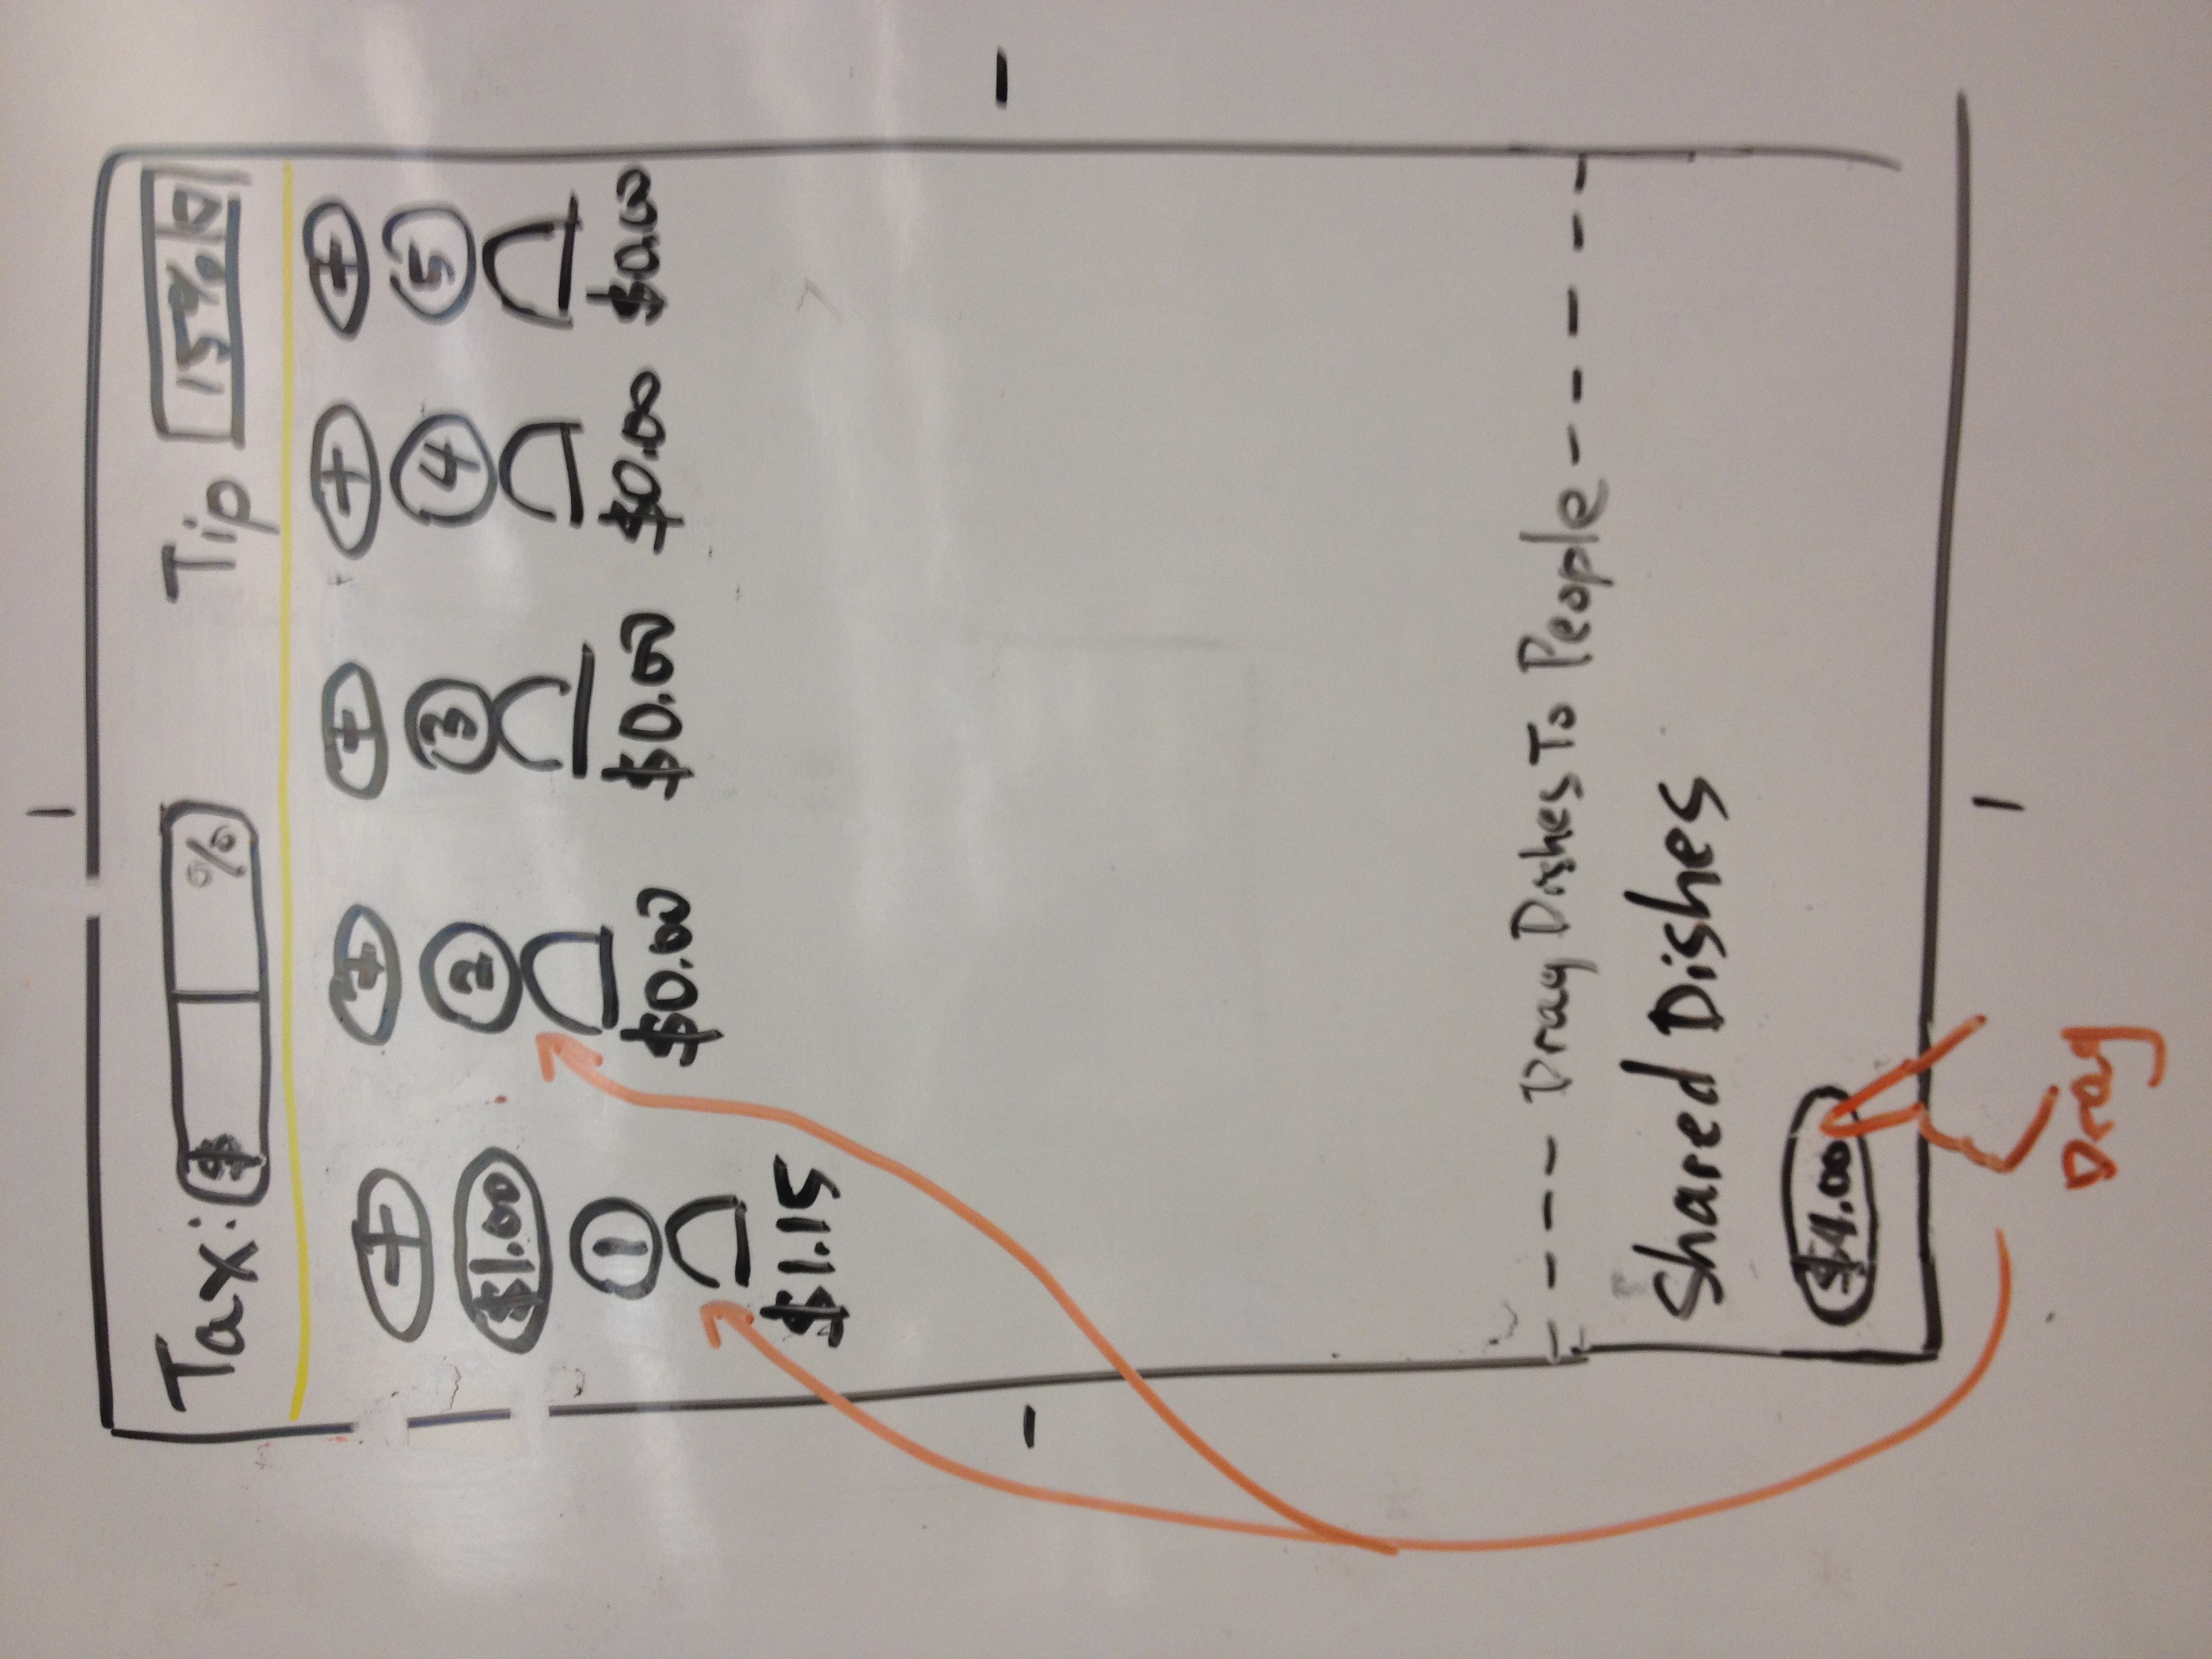 Tax: $ % Tip 15%
+ + + + +
$1.00 2 3 4 5
1 $0.00 $0.00 $0.00 $0.00
$1.15
Drag Dishes To People
Shared Dishes
$4.00
Drag